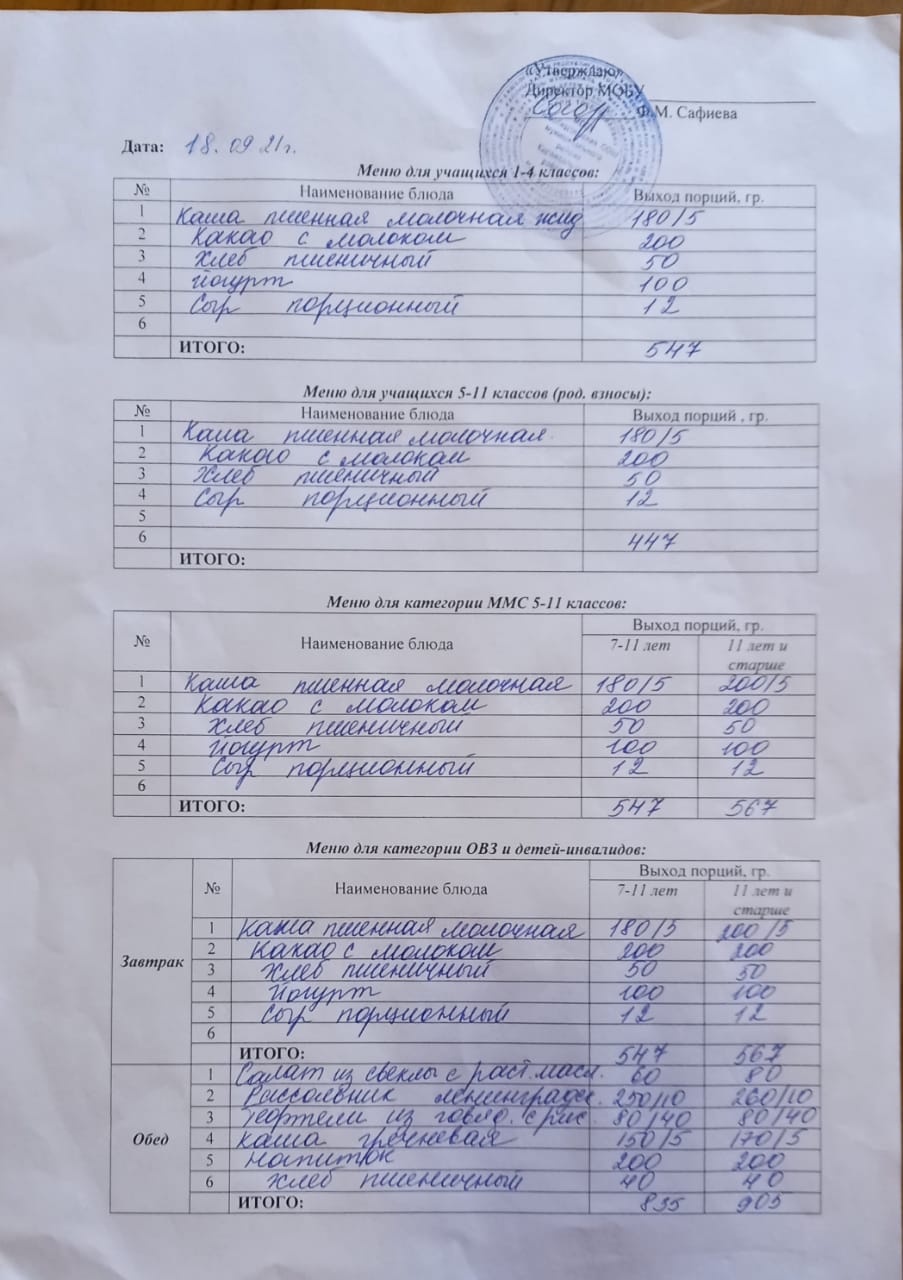 «Утверждаю»
Директор МОБУ
Ф.М. Сафиева
Дата: 18.09 21г.
Меню для учащихся 1-4 классов:
№ Наименование блюда Выход порций, гр.
1 Каша пшенная молочная жид 180/5
2 Какао с молоком 200
3 Хлеб пшеничный 50
4 Йогурт 100
5 Сыр порционный 12
6
ИТОГО: 547
Меню для учащихся 5-11 классов (род. взносы):
№ Наименование блюда Выход порций , гр.
1 Каша пшенная молочная 180/5
2 Какао с молоком 200
3 Хлеб пшеничный 50
4 Сыр порционный 12
5
6 447
ИТОГО:
Меню для категории ММС 5-11 классов:
№ Наименование блюда Выход порций, гр.
7-11 лет 11 лет и старше
1 Каша пшенная молочная 180/5 200/5
2 Какао с молоком 200 200
3 Хлеб пшеничный 50 50
4 Йогурт 100 100
5 Сыр порционный 12 12
6
ИТОГО: 547 567
Меню для категории ОВЗ и детей-инвалидов:
№ Наименование блюда Выход порций, гр.
7-11 лет 11 лет и старше
Завтрак
1 Каша пшенная молочная 180/5 200/5
2 Какао с молоком 200 200
3 Хлеб пшеничный 50 50
4 Йогурт 100 100
5 Сыр порционный 12 12
6
ИТОГО: 547 567
Обед
1 Салат из свеклы с раст. масл. 60 80
2 Рассольник ленинградск. 250/10 260/10
3 Тефтели из говяд. с рис. 80/40 80/40
4 Каша гречневая 150/5 170/5
5 Напиток 200 200
6 Хлеб пшеничный 40 40
ИТОГО: 835 905